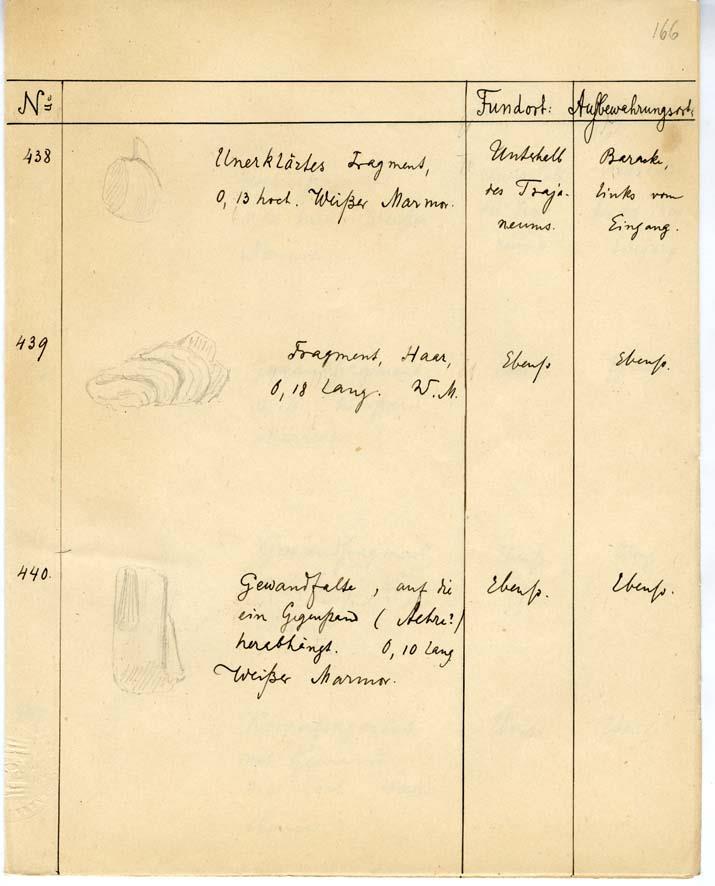 166
No Fundort: Aufbewahrungsort:
438
Unerklärtes Fragment,
0,13 hoch. Weißer Marmor.
Unterhalb
des Traja-
neums.
Baracke,
links vom
Eingang.
439
Fragment, Haar,
0,18 lang. W. M.
Ebenso.
Ebenso.
440.
Gewandfalte, auf die
ein Gegenstand (Aehre?)
herabhängt. 0,10 lang
Weißer Marmor.
Ebenso.
Ebenso.